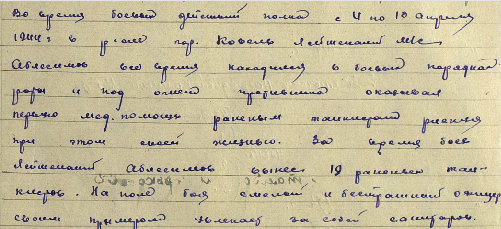 Во время боевых действий полка с 4 по 10 апреля
1944 г в р-оне гор. Ковель Лейтенант м/с
Аблесимов все время находился в боевых порядках
роты и под огнем противника оказывал
первую мед. помощь раненым танкистам рискуя
при этом своей жизнью. За время боев
Лейтенант Аблесимов вынес 19 раненых тан-
кистов. На поле боя смелый и бесстрашный офицер
своим примером увлекает за собой санитаров.